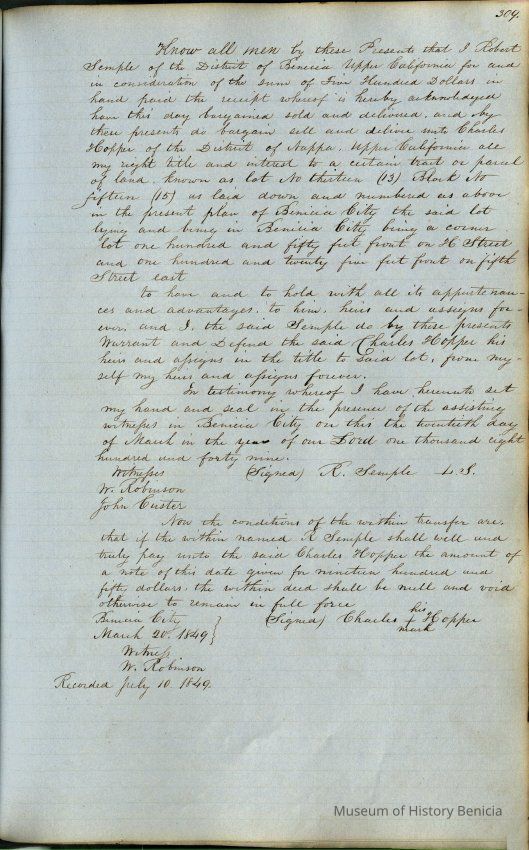 309.
Know all men by these Presents that I Robert
Semple of the District of Benicia Upper California for and
in consideration of the sum of Five Hundred Dollars in
hand paid the receipt whereof is hereby acknowledged
have this day bargained sold and delivered, and by
these presents do bargain sell and deliver unto Charles
Hopper of the District of Nappa, Upper California all
my right title and interest to a certain tract or parcel
of land, known as lot No thirteen (13) Block No
fifteen (15) as laid down and numbered as above
in the present plan of Benicia City the said lot
lying and being in Benicia City being a corner
lot one hundred and fifty feet front on H Street
and one hundred and twenty five feet front on fifth
Street east
to have and to hold with all its appurtenan-
ces and advantages, to him, heirs and assigns for
ever, and I, the said Semple do by these presents
Warrant and Defend the said Charles Hopper his
heirs and assigns in the title to said lot, from my-
self my heirs and assigns forever.
In testimony whereof I have hereunto set
my hand and seal in the presence of the assisting
witness in Benicia City on this the twentieth day
of March in the year of our Lord one thousand eight
hundred and forty nine.
Witnesses (Signed) R. Semple L.S.
W. Robinson
John Custer
Now the conditions of the within transfer are,
that if the within named R Semple shall well and
truly pay unto the said Charles Hopper the amount of
a note of this date given for nineteen hundred and
fifty dollars, the within deed shall be null and void
otherwise to remain in full force
Benicia City } (Signed) Charles his + mark Hopper
March 20. 1849 }
Witness
W. Robinson
Recorded July 10. 1849.
Museum of History Benicia